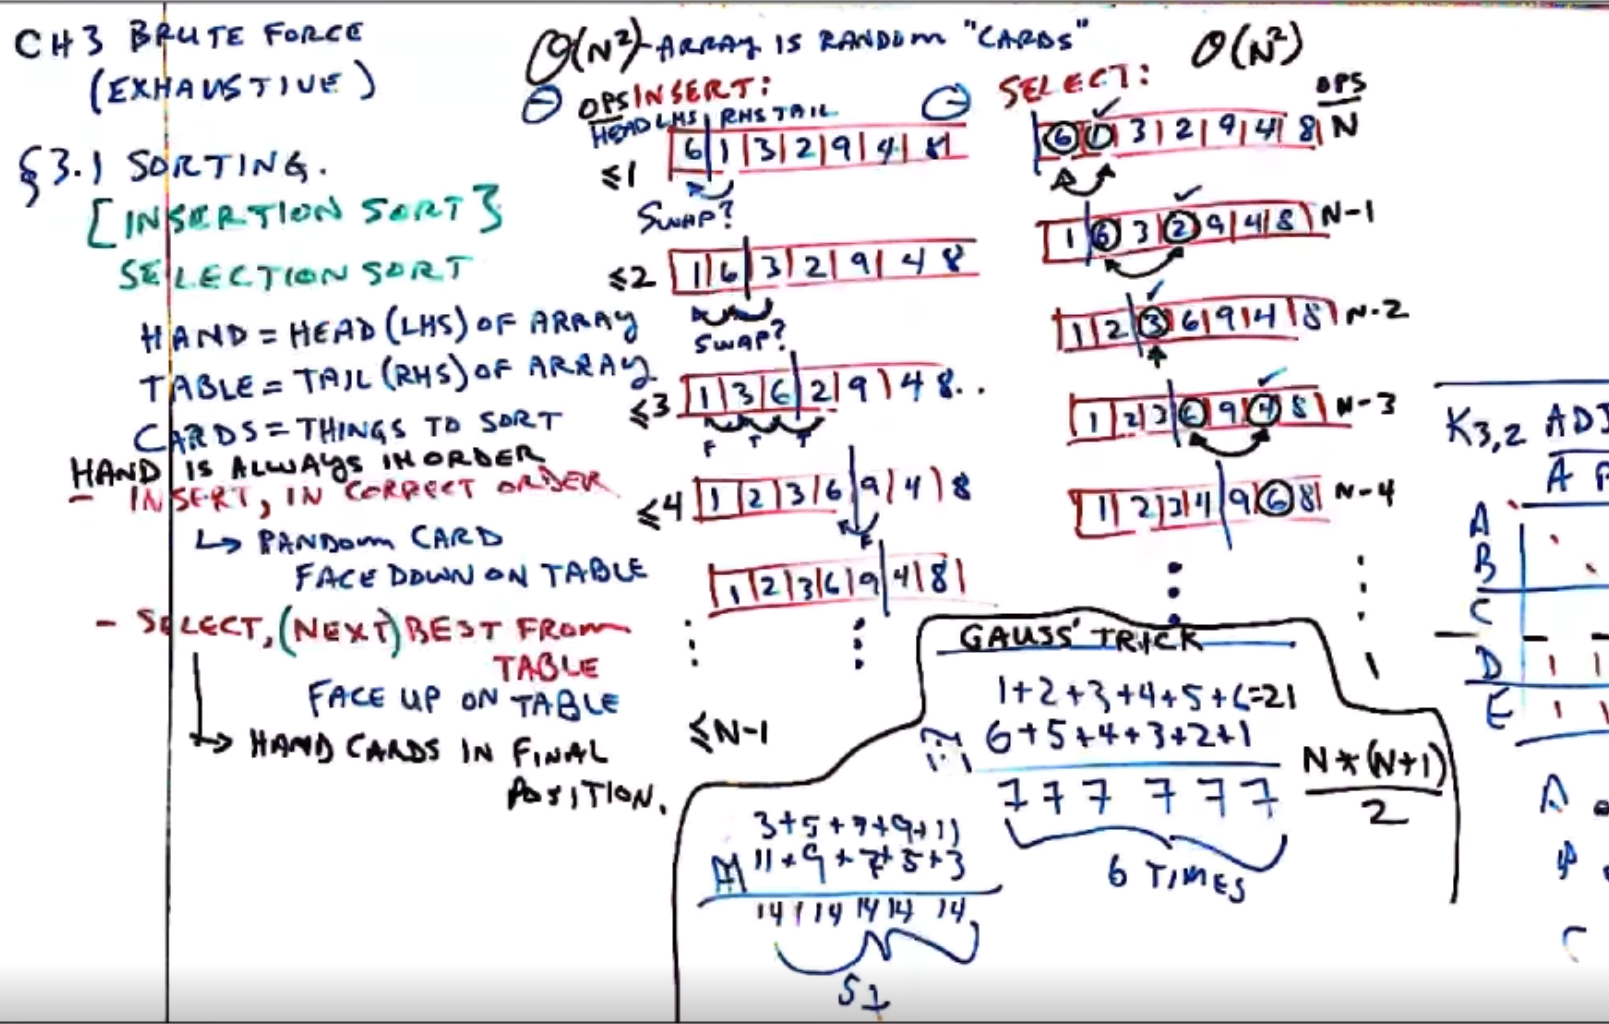 CH 3 BRUTE FORCE
(EXHAUSTIVE)
§3.1 SORTING.
[INSERTION SORT}
SELECTION SORT
HAND = HEAD (LHS) OF ARRAY
TABLE = TAIL (RHS) OF ARRAY
CARDS = THINGS TO SORT
HAND IS ALWAYS IN ORDER
- INSERT, IN CORRECT ORDER
↳ RANDOM CARD
FACE DOWN ON TABLE
- SELECT, (NEXT) BEST FROM
TABLE
FACE UP ON TABLE
↳ HAND CARDS IN FINAL
POSITION.
O(N²) - ARRAY IS RANDOM "CARDS"
OPS INSERT:
HEAD LHS | RHS TAIL
≤1 6|1|3|2|9|4|8|
SWAP?
≤2 1|6|3|2|9|4 8
SWAP?
≤3 1|3|6|2|9|4 8..
F T T
≤4 1|2|3|6|9|4|8
F
1|2|3|6|9|4|8|
⋮ ⋮
≤N-1
O(N²)
SELECT:
OPS
6 1 3|2|9|4|8| N
1|6 3 2 9|4|8| N-1
1|2|3|6|9|4|8| N-2
1|2|3|6 9 4 8| N-3
1|2|3|4|9 6 8| N-4
⋮ ⋮
1
GAUSS' TRICK
1+2+3+4+5+6=21
6+5+4+3+2+1
7 7 7 7 7 7
6 TIMES
N*(N+1)
2
3+5+7+9+11
11+9+7+5+3
14 14 14 14 14
K3,2 ADJ
A
A
B
C
D 1 1
E 1 1
A